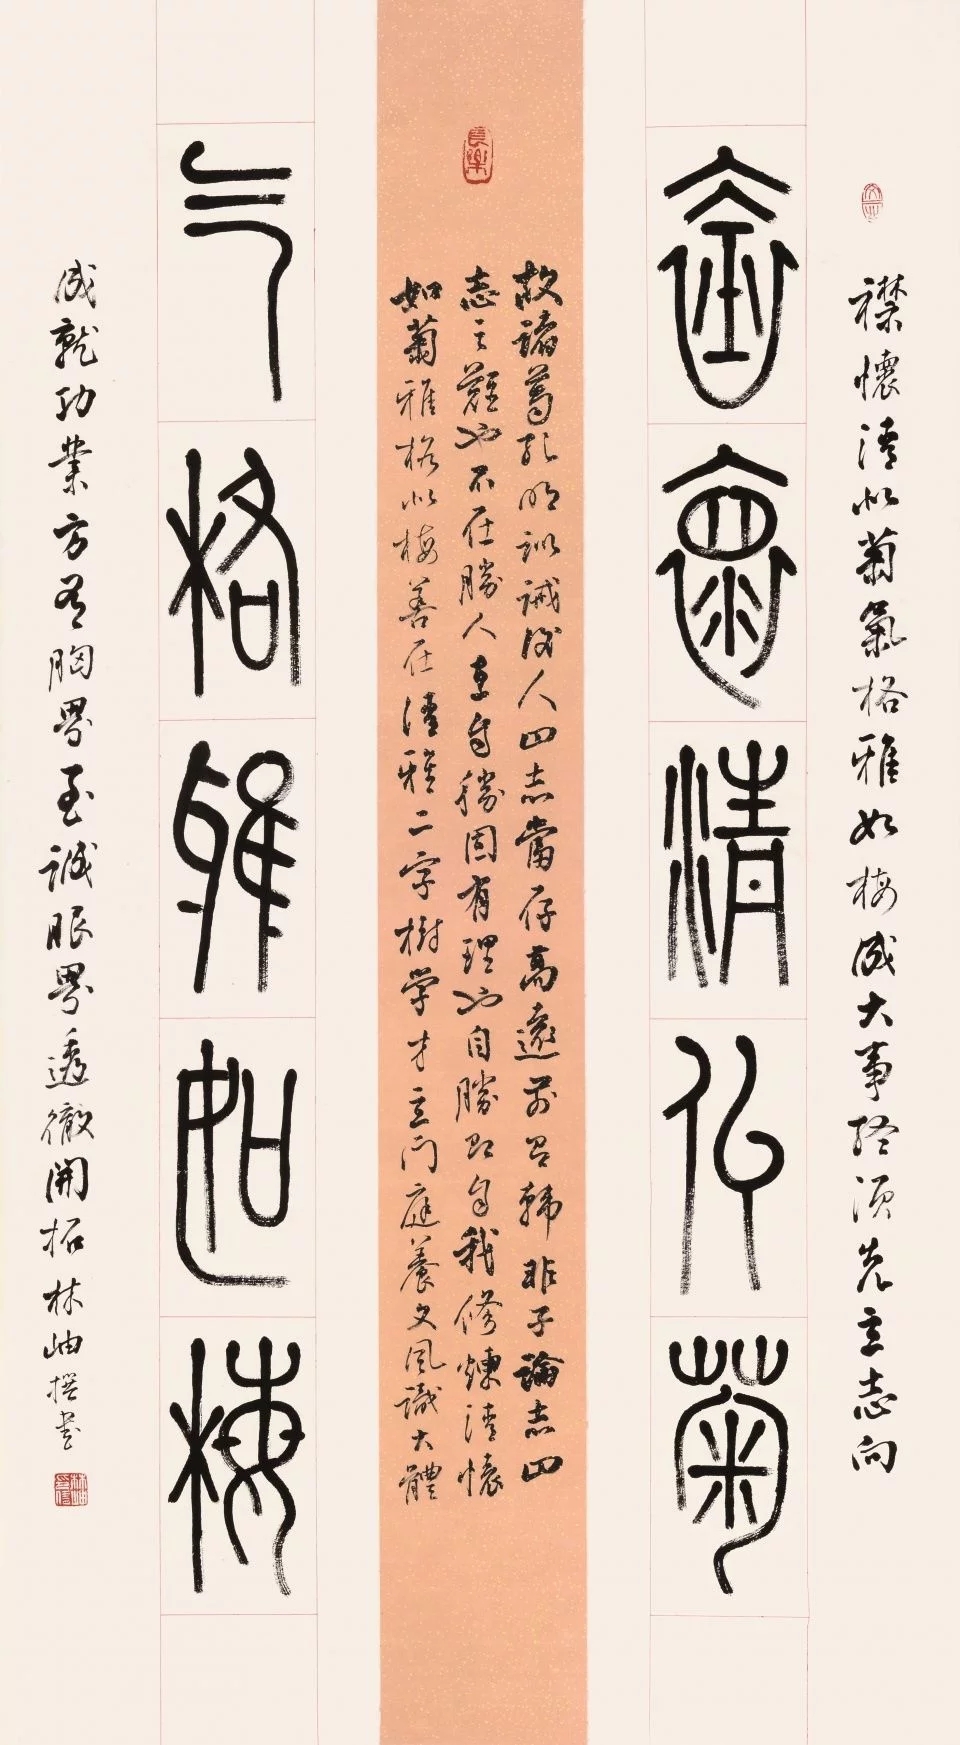 襟懷清似菊氣格雅如梅成大事終須先立志向
襟懷清似菊
長樂
故諸葛孔明訓誡後人曰志當存高遠前韓非子論志曰
志之難也不在勝人在自勝固有理也自勝即自我修煉清懷
如菊雅格似梅善在清雅二字樹學才立門庭養文風識大體
气格雅如梅
成就功業方有胸界至誠眼界透徹開拓林岫撰書